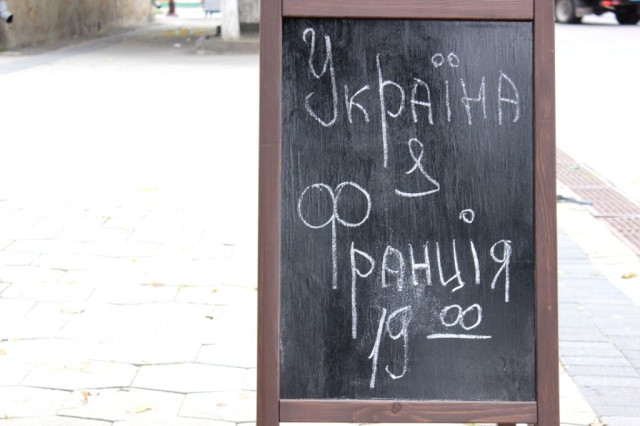 Україна
Франція
19 00